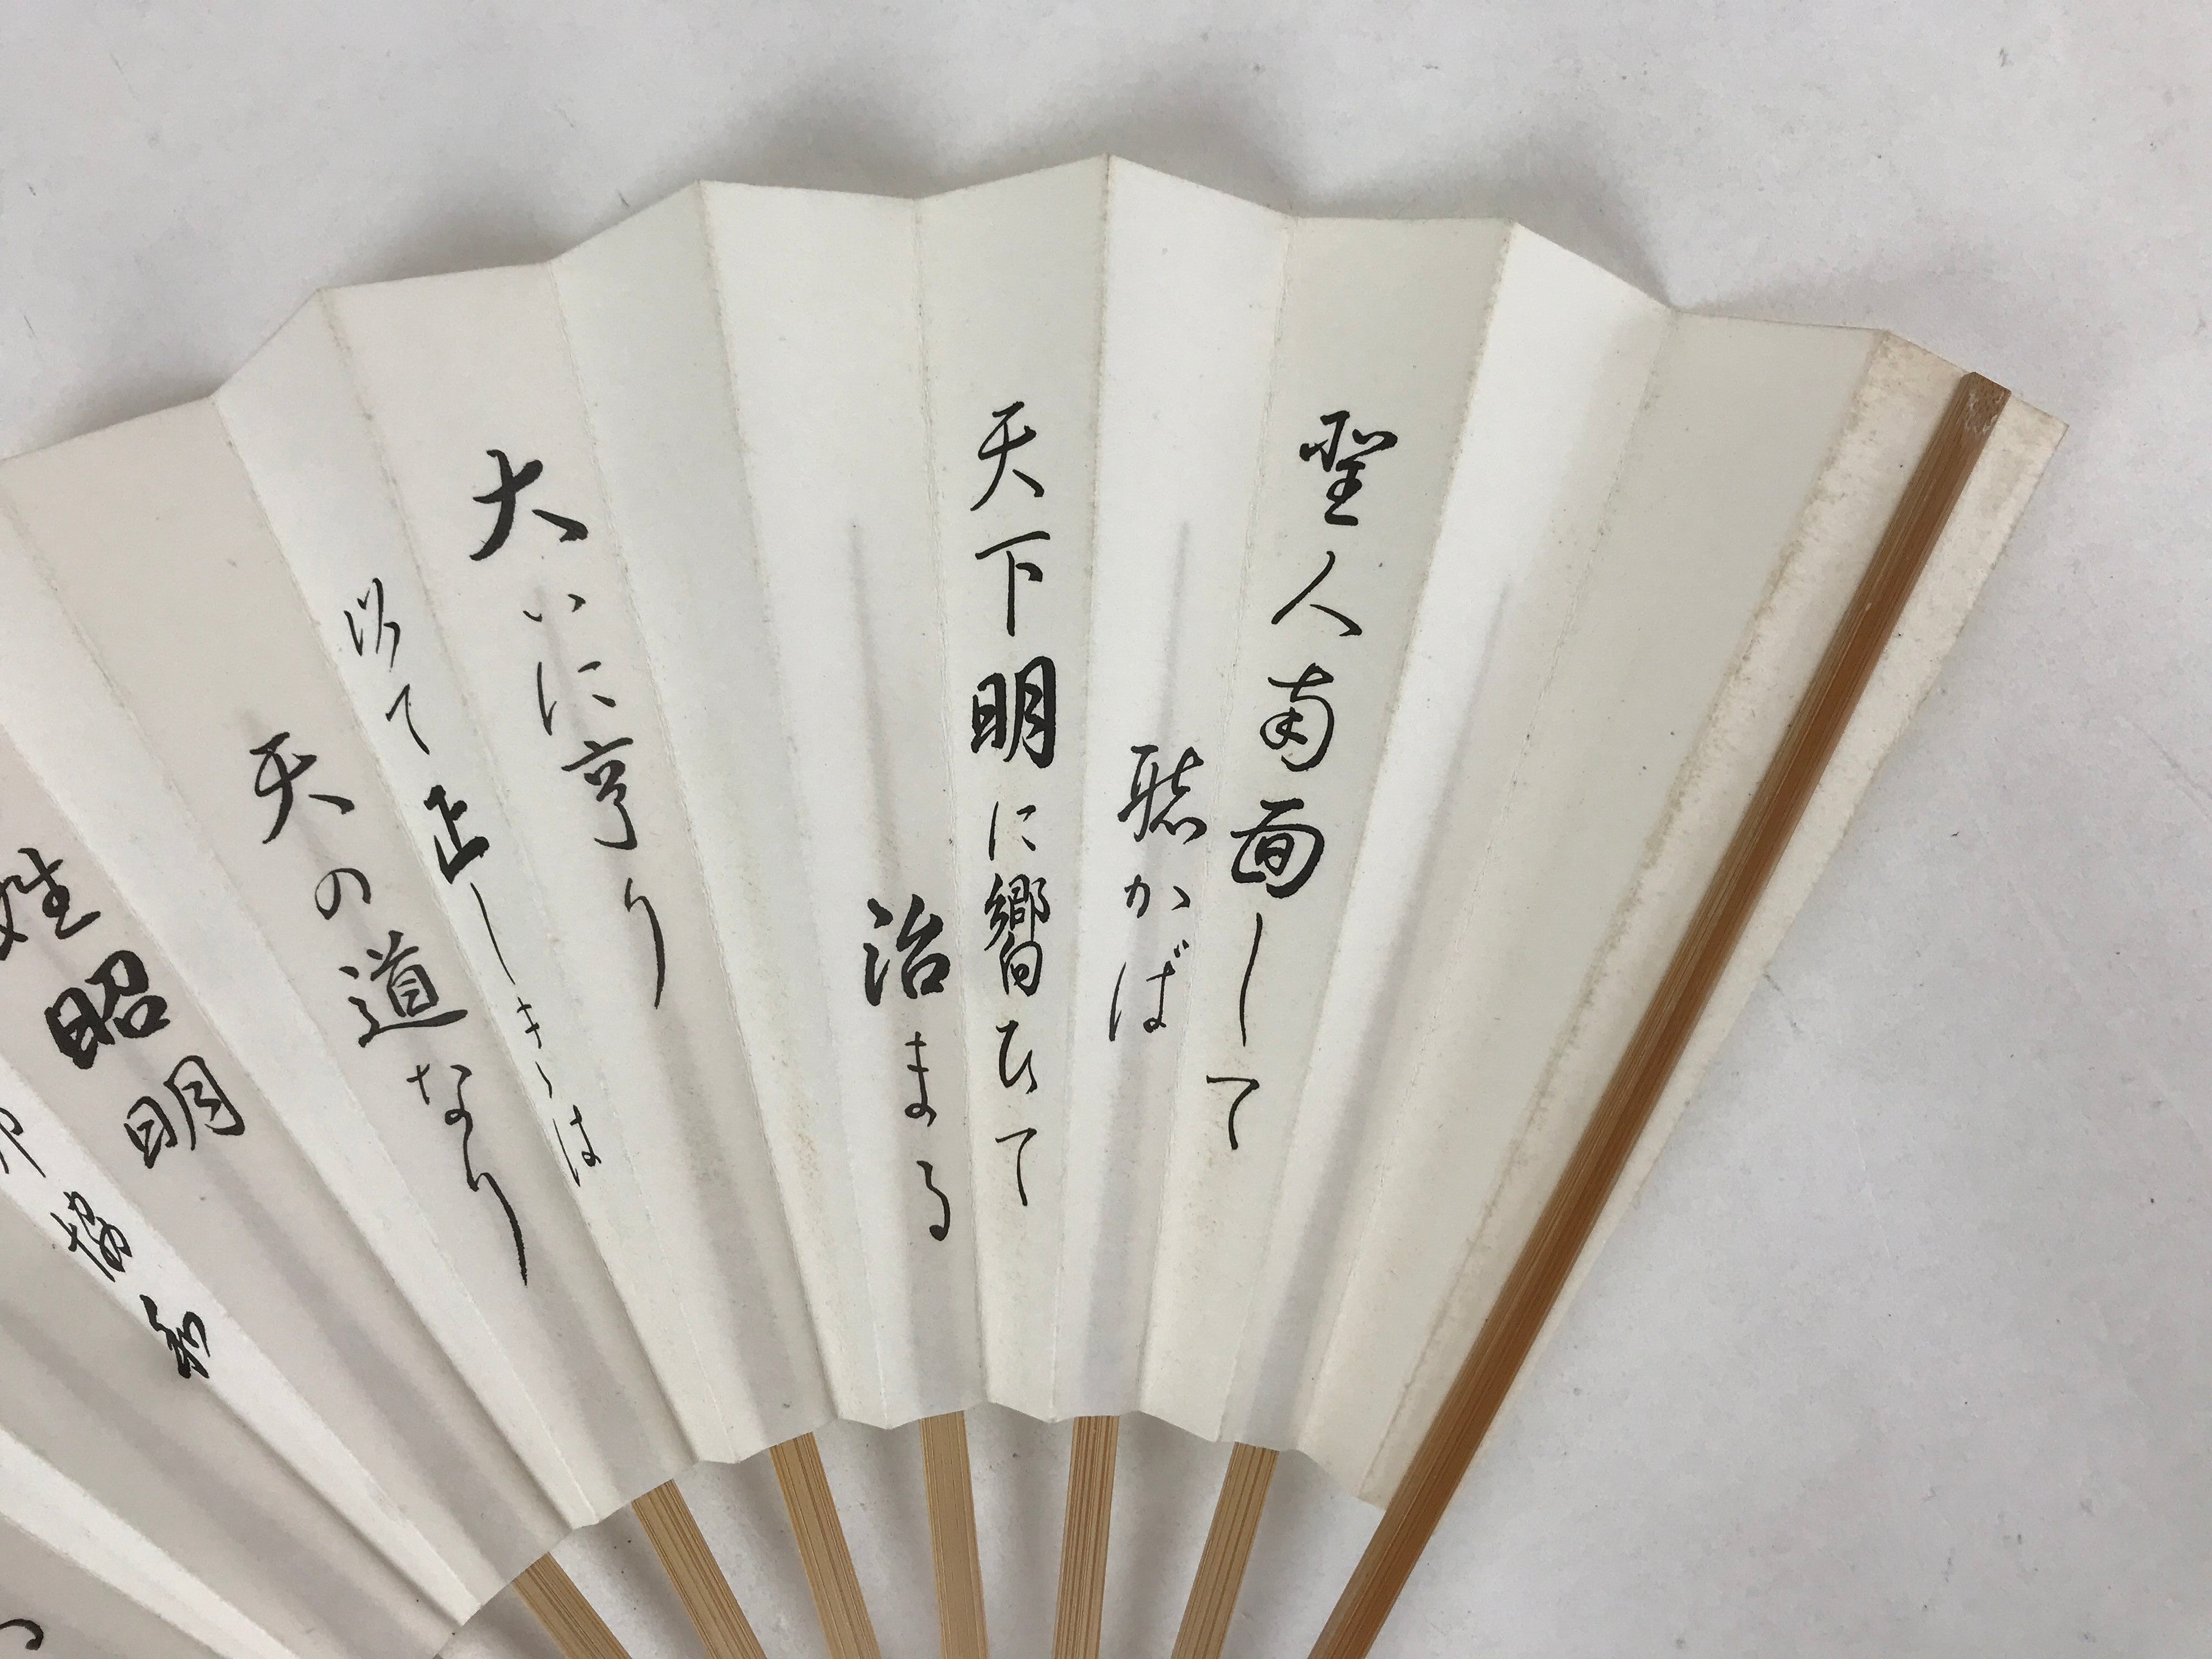 聖人南面して
聴かば
天下明に嚮ひて
治まる
大いに亨り
以て正しきは
天の道なり
姓昭明
協和